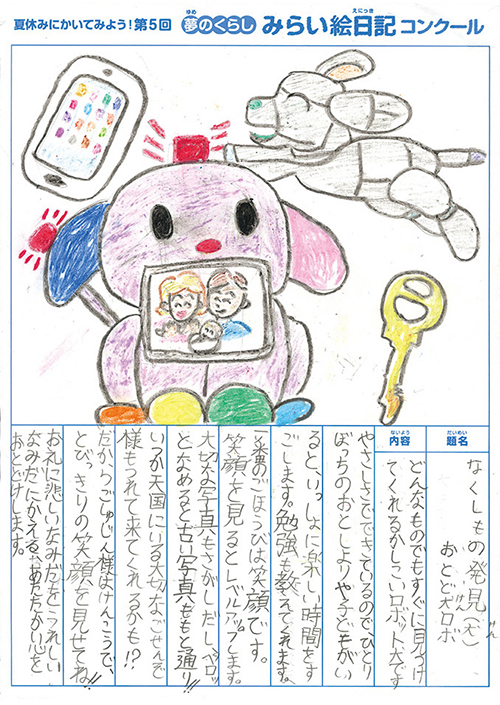 夏休みにかいてみよう!第5回 夢のくらし みらい絵日記 コンクール
ゆめ
えにっき
だいめい
題名
なくしもの発見(犬)
けん
おとど犬ロボ
けん
ないよう
内容
どんなものでもすぐに見つけ
てくれるかしこいロボット犬です
やさしさでできているので、ひとり
ぼっちのおとしよりや子どもがい
ると、いっしょに楽しい時間をす
ごします。勉強も教えてくれます。
一番のごほうびは笑顔です。
笑顔を見るとレベルアップします。
大切な写真もさがしだし、ペロッ
となめると古い写真ももと通り!!
いつか天国にいる大切なごせんぞ
様もつれて来てくれるかも!?
だからごしゅじん様はけんこうで、
とびっきりの笑顔を見せてね!!
お礼に悲しいなみだをうれしい
なみだにかえる、あたたかい心を
おとどけします。